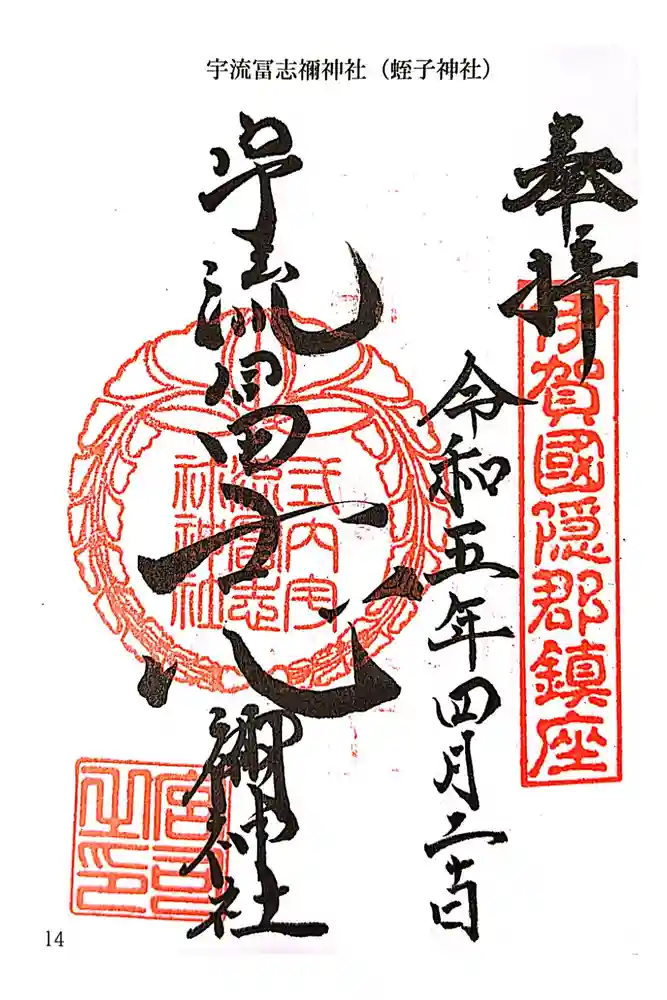 宇流冨志禰神社（蛭子神社）
奉拝
伊賀國隠郡鎮座
令和五年四月二十日
宇流冨志禰神社
式内宇
流冨志
祢神社
宮司
之印
14